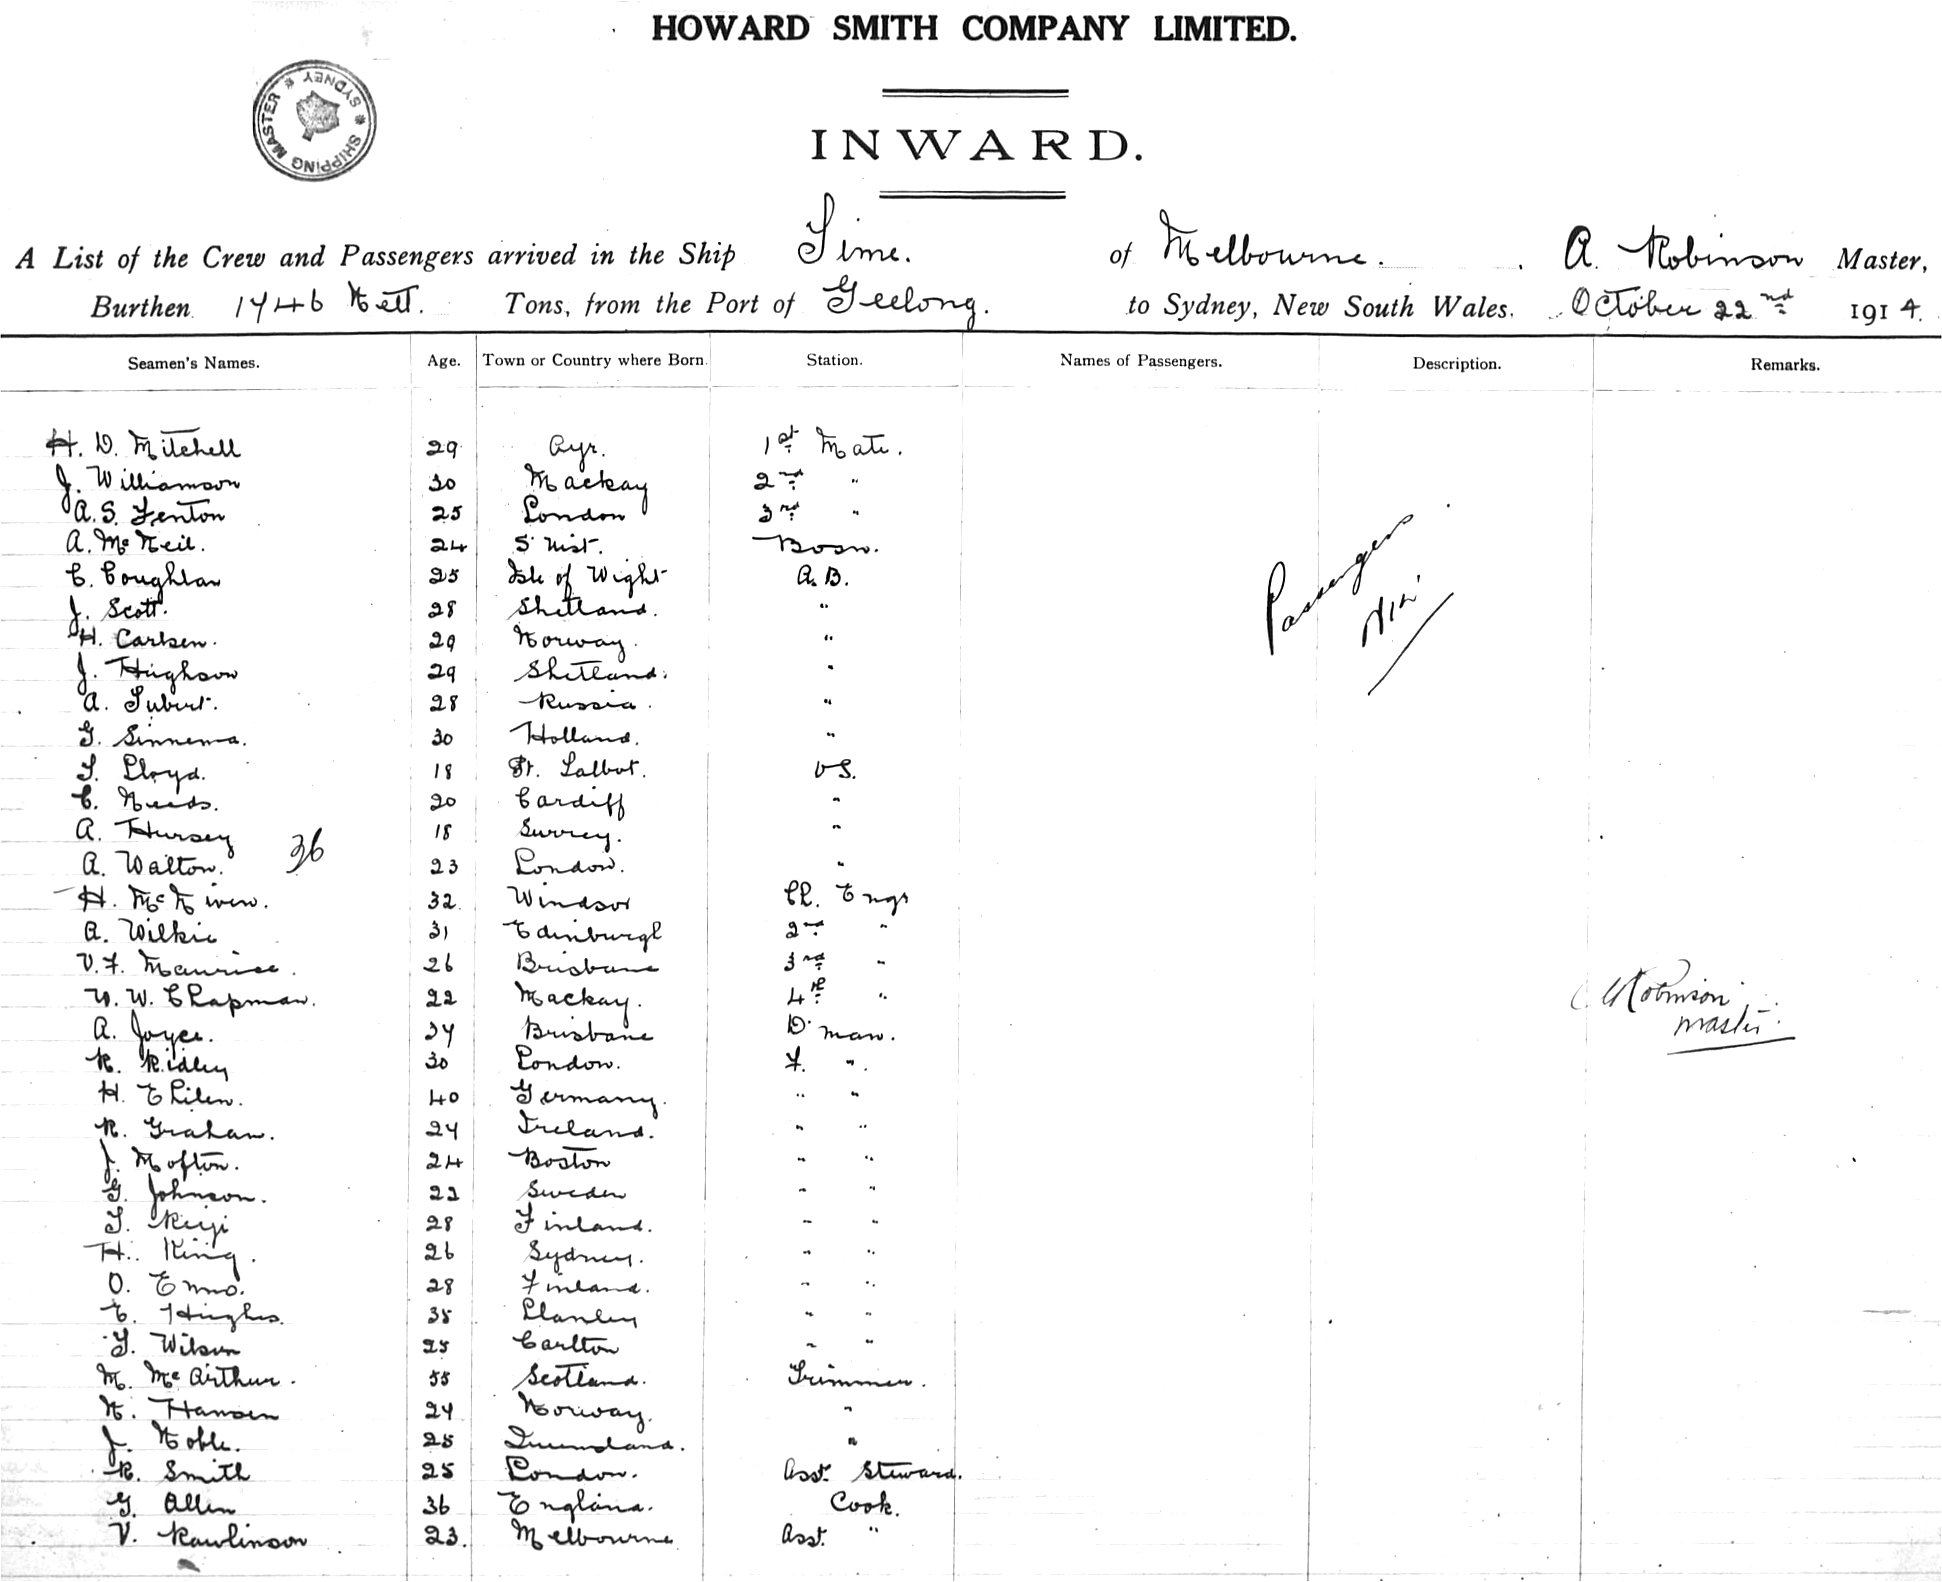 HOWARD SMITH COMPANY LIMITED.
SHIPPING MASTER * SYDNEY *
INWARD.
A List of the Crew and Passengers arrived in the Ship Time. of Melbourne. A. Robinson Master,
Burthen 1746 Nett. Tons, from the Port of Geelong. to Sydney, New South Wales. October 22nd 1914.
Seamen's Names. Age. Town or Country where Born. Station. Names of Passengers. Description. Remarks.
H. D. Mitchell 29 Ayr. 1st Mate.
J. Williamson 30 Mackay 2nd "
A. S. Fenton 25 London 3rd "
A. McNeil. 24 S. Uist. Bosn.
C. Coughlan 25 Isle of Wight A.B.
J. Scott. 28 Shetland. "
H. Carlsen. 29 Norway. "
J. Hughson 29 Shetland. "
A. Tubert. 28 Russia. "
G. Sinnema. 30 Holland. "
T. Lloyd. 18 Pt. Talbot. O S.
C. Needs. 20 Cardiff "
A. Hursey 18 Surrey. "
36
A. Walton. 23 London. "
H. McNiven. 32 Windsor Ch. Engr
A. Wilkie 31 Edinburgh 2nd "
V. F. Maurice. 26 Brisbane 3rd "
W. Chapman. 22 Mackay. 4th "
A. Joyce. 37 Brisbane D. man.
R. Ridley 30 London. F. ".
H. Ehlen. 40 Germany. " "
R. Graham. 27 Ireland. " "
J. Mofton. 24 Boston " "
G. Johnson. 22 Sweden " "
28 Finland. " "
H. King. 26 Sydney. " "
O. Enno. 28 Finland. " "
E. Hughes. 35 Llanley " "
T. Wilson 25 Carlton " "
M. McArthur. 55 Scotland. Trimmer.
N. Hansen 27 Norway. "
J. Noble. 25 Queensland. "
R. Smith 25 London. Asst. Steward.
G. Allen 36 England. Cook.
V. Rawlinson 23. Melbourne Asst. "
Passengers
Nil
A Robinson
Master.